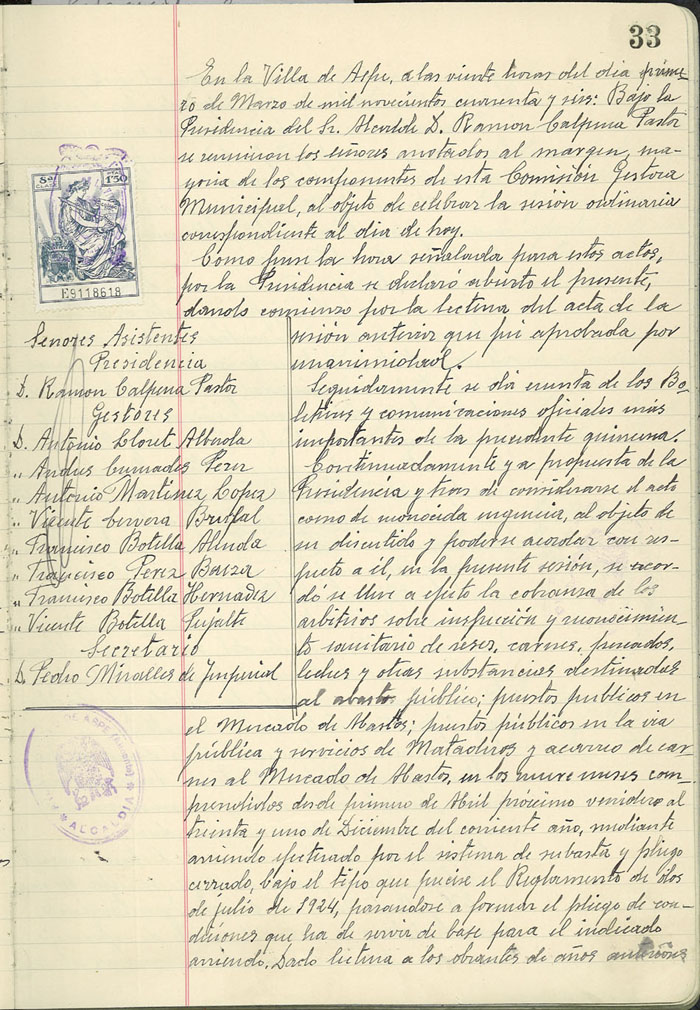 33
En la Villa de Aspe, a las veinte horas del dia prime-
ro de Marzo de mil novecientos cuarenta y seis: Bajo la
Presidencia del Sr. Alcalde D. Ramon Calpena Pastor
se reunieron los señores anotados al margen, ma-
yoria de los componentes de esta Comisión Gestora
Municipal, al objeto de celebrar la sesión ordinaria
correspondiente al dia de hoy.
Como fuese la hora señalada para estos actos,
por la Presidencia se declaró abierto el presente,
dando comienzo por la lectura del acta de la
sesión anterior que fué aprobada por
unanimidad.
Seguidamente se dió cuenta de los Bo-
letines y comunicaciones oficiales más
importantes de la precedente quincena.
Continuadamente y a propuesta de la
Presidencia y tras de considerarse el acto
como de reconocida urgencia, al objeto de
ser discutido y poderse acordar con res-
pecto a él, en la presente sesión, se acor-
dó se lleve a efecto la cobranza de los
arbitrios sobre inspección y reconocimien-
to sanitario de reses, carnes, pescados,
leches y otras substancias destinadas
al abasto público; puestos publicos en
el Mercado de Abastos; puestos públicos en la via
pública y servicios de Mataderos y acarreo de car-
nes al Mercado de Abastos, en los nueve meses com-
prendidos desde primero de Abril próximo venidero al
treinta y uno de Diciembre del corriente año, mediante
arriendo efectuado por el sistema de subasta y pliego
cerrado, bajo el tipo que previse el Reglamento de dos
de julio de 1924, pasandose a formar el pliego de con-
diciones que ha de servir de base para el indicado
arriendo. Dado lectura a los obrantes de años anteriores
8ª
CLASE
1'50
E9118618
Señores Asistentes
Presidencia
D. Ramon Calpena Pastor
Gestores
D. Antonio Lloret Alberola
" Andres Cremades Perez
" Antonio Martinez Lopez
" Vicente Cervera
" Francisco Botella Almela
" Francisco Perez
" Francisco Botella Hernadez
" Vicente Botella
Secretario
D. Pedro Miralles de Imperial
ALCALDIA